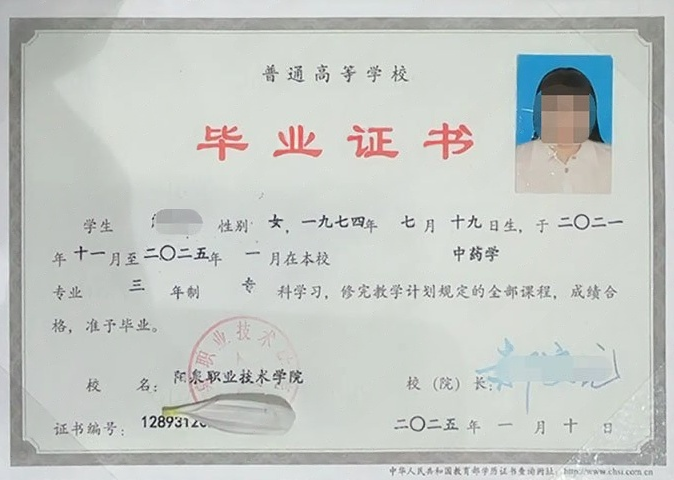 普通高等学校
毕业证书
学生 性别 女,一九七四年 七月十九日生,于二〇二一
年十一月至二〇二五年一月在本校 中药学
专业 三年制 专科学习,修完教学计划规定的全部课程,成绩合
格,准予毕业。
职业技术
校名:阳泉职业技术学院 校(院)长:
证书编号:12893120 二〇二五年一月十日
中华人民共和国教育部学历证书查询网址:http://www.chsi.com.cn